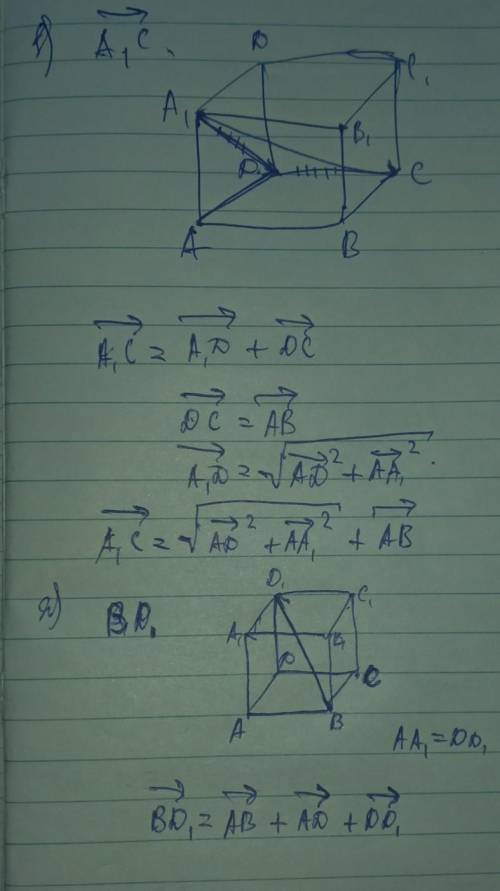 в) $\overrightarrow{A_1C}$.
D C₁
A₁ B₁
D C
A B
$\overrightarrow{A_1C} = \overrightarrow{A_1D} + \overrightarrow{DC}$
$\overrightarrow{DC} = \overrightarrow{AB}$
$\overrightarrow{A_1D} = \sqrt{\overrightarrow{AD}^2 + \overrightarrow{AA_1}^2}$.
$\overrightarrow{A_1C} = \sqrt{\overrightarrow{AD}^2 + \overrightarrow{AA_1}^2} + \overrightarrow{AB}$
BD₁
D₁ C₁
A₁ B₁
D C
A B
AA₁ = DD₁
$\overrightarrow{BD_1} = \overrightarrow{AB} + \overrightarrow{AD} + \overrightarrow{DD_1}$